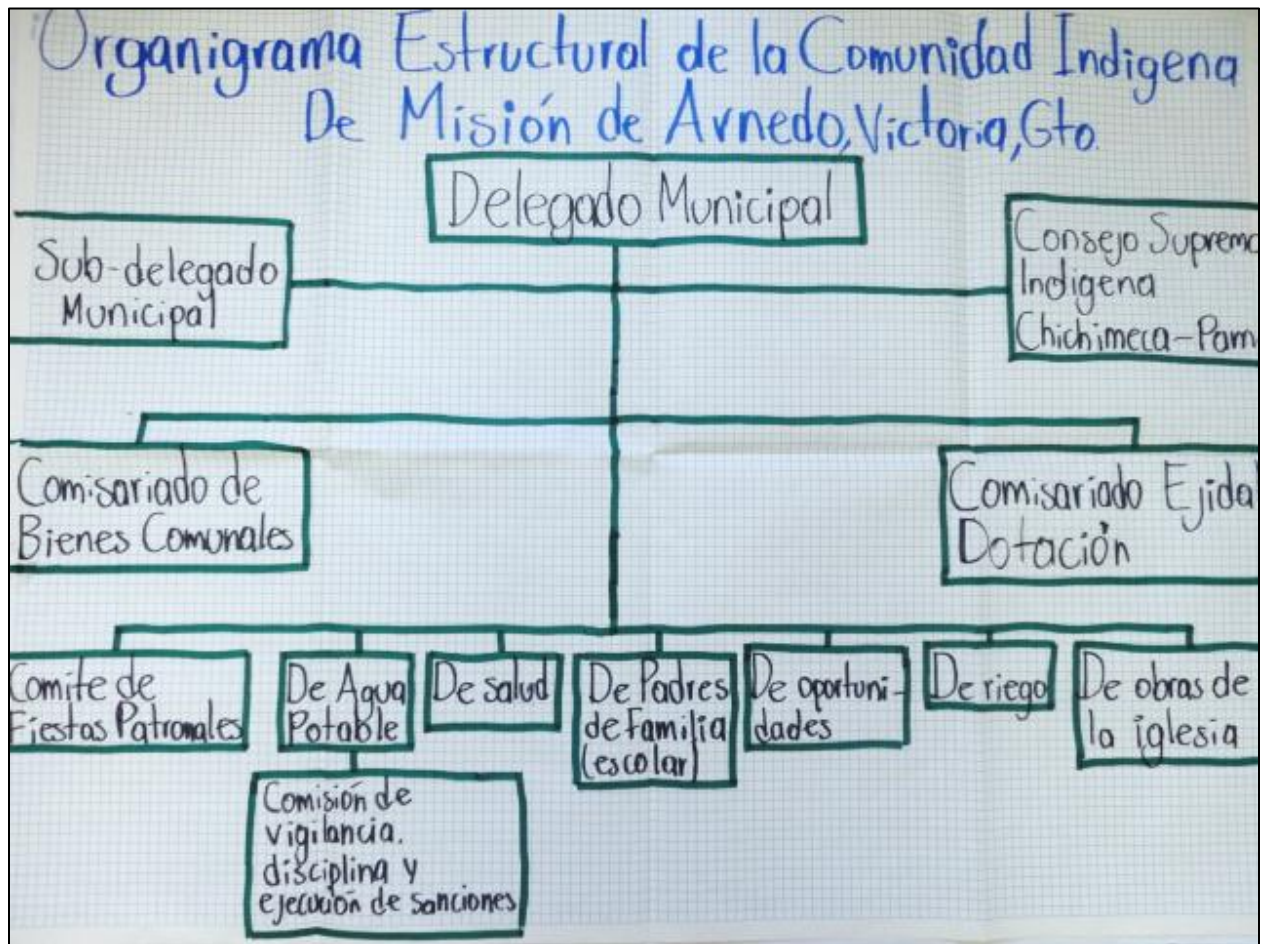 Organigrama Estructural de la Comunidad Indigena
De Misión de Arnedo, Victoria, Gto.
Delegado Municipal
Sub-delegado
Municipal
Consejo Supremo
Indigena
Chichimeca-Pam
Comisariado de
Bienes Comunales
Comisariado Ejidal
Dotación
Comite de
Fiestas Patronales
De Agua
Potable
De salud
De Padres
de familia
(escolar)
De oportuni-
dades
De riego
De obras de
la iglesia
Comisión de
vigilancia.
disciplina y
ejecución de sanciones